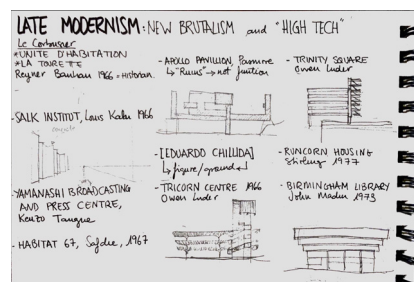 LATE MODERNISM: NEW BRUTALISM and "HIGH TECH"
Le Corbusier
*UNITE D'HABITATION
*LA TOURETTE
Reyner Banham 1966 = Historian.
- SALK INSTITUT, Louis Kahn 1966
- YAMANASHI BROADCASTING
AND PRESS CENTRE,
Kenzo Tangue
- HABITAT 67, Safdie, 1967
- APOLLO PAVILION, Pasmore
↳ "Ruins" → not function
- [EDUARDO CHILLIDA]
↳ figure/ground
- TRICORN CENTRE 1966
Owen Luder
- TRINITY SQUARE
Owen Luder
- RUNCORN HOUSING
Stirling 1977
- BIRMINGHAM LIBRARY
John Madin 1973